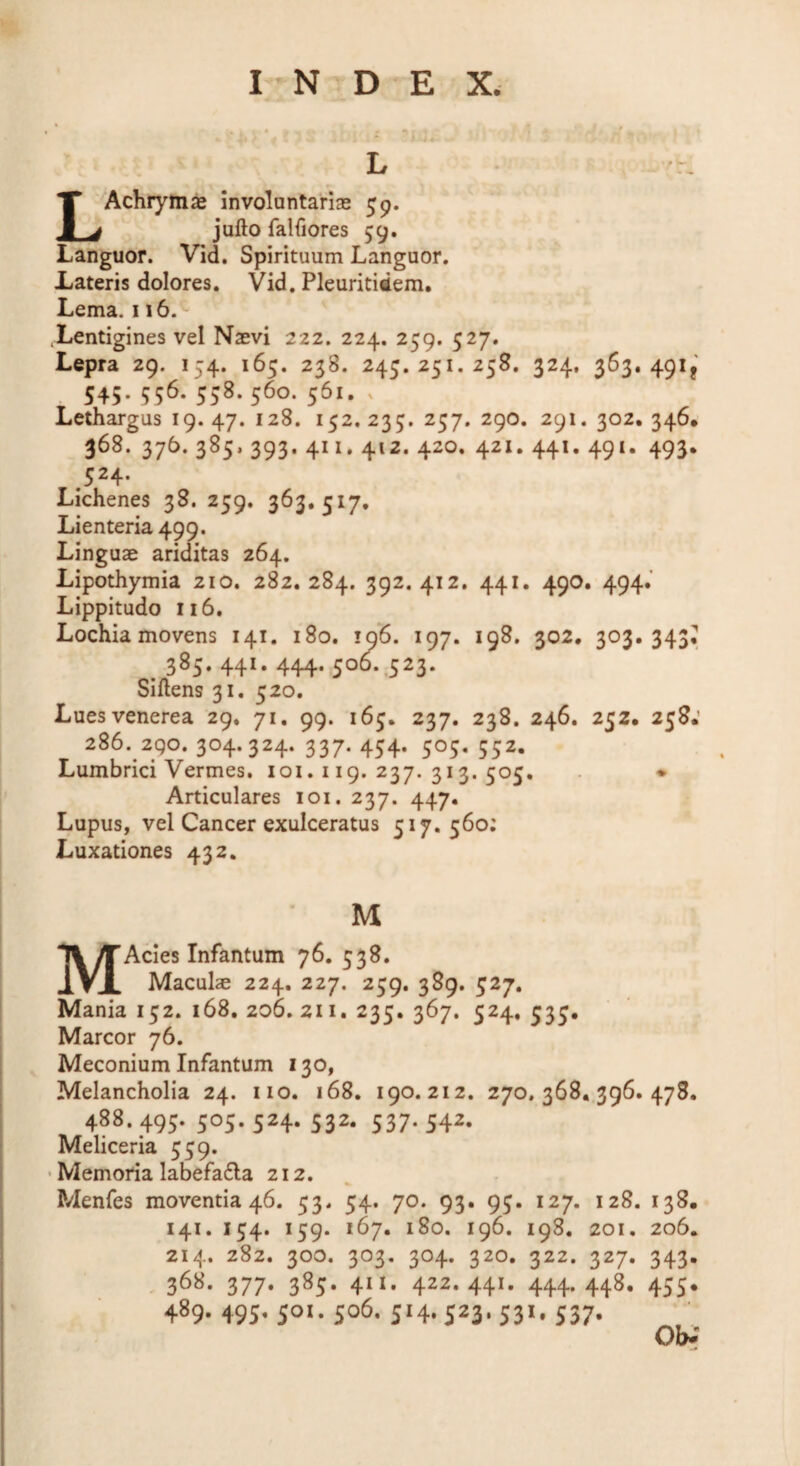 INDEX.
L
LAchrymæ involuntariæ 59.
justo falsiores 59.
Languor. Vid. Spirituum Languor.
Lateris dolores. Vid. Pleuritidem.
Lema. 116.
Lentigines vel Nævi 222. 224. 259. 527.
Lepra 29. 154. 165. 238. 245. 251. 258. 324. 363. 491,
545. 556. 558. 560. 561.
Lethargus 19. 47. 128. 152. 235. 257. 290. 291. 302. 346.
368. 376. 385, 393. 411. 412. 420. 421. 441. 491. 493.
524.
Lichenes 38. 259. 363. 517.
Lienteria 499.
Linguæ ariditas 264.
Lipothymia 210. 282. 284. 392. 412. 441. 490. 494.
Lippitudo 116.
Lochia movens 141. 180. 196. 197. 198. 302. 303. 343.
385. 441. 444. 506. 523.
Sistens 31. 520.
Lues venerea 29. 71. 99. 165. 237. 238. 246. 252. 258.
286. 290. 304. 324. 337. 454. 505. 552.
Lumbrici Vermes. 101. 119. 237. 313. 505.
Articulares 101. 237. 447.
Lupus, vel Cancer exulceratus 517. 560:
Luxationes 432.
M
MAcies Infantum 76. 538.
Maculæ 224. 227. 259. 389. 527.
Mania 152. 168. 206. 211. 235. 367. 524. 535.
Marcor 76.
Meconium Infantum 130,
Melancholia 24. 110. 168. 190. 212. 270. 368. 396. 478.
488. 495. 505. 524. 532. 537. 542.
Meliceria 559.
Memoria labefacta 212.
Menses moventia 46. 53. 54. 70. 93. 95. 127. 128. 138.
141. 154. 159. 167. 180. 196. 198. 201. 206.
214. 282. 300. 303. 304. 320. 322. 327. 343.
368. 377. 385. 411. 422. 441. 444. 448. 455.
489. 495. 501. 506. 514. 523. 531. 537.
Ob-